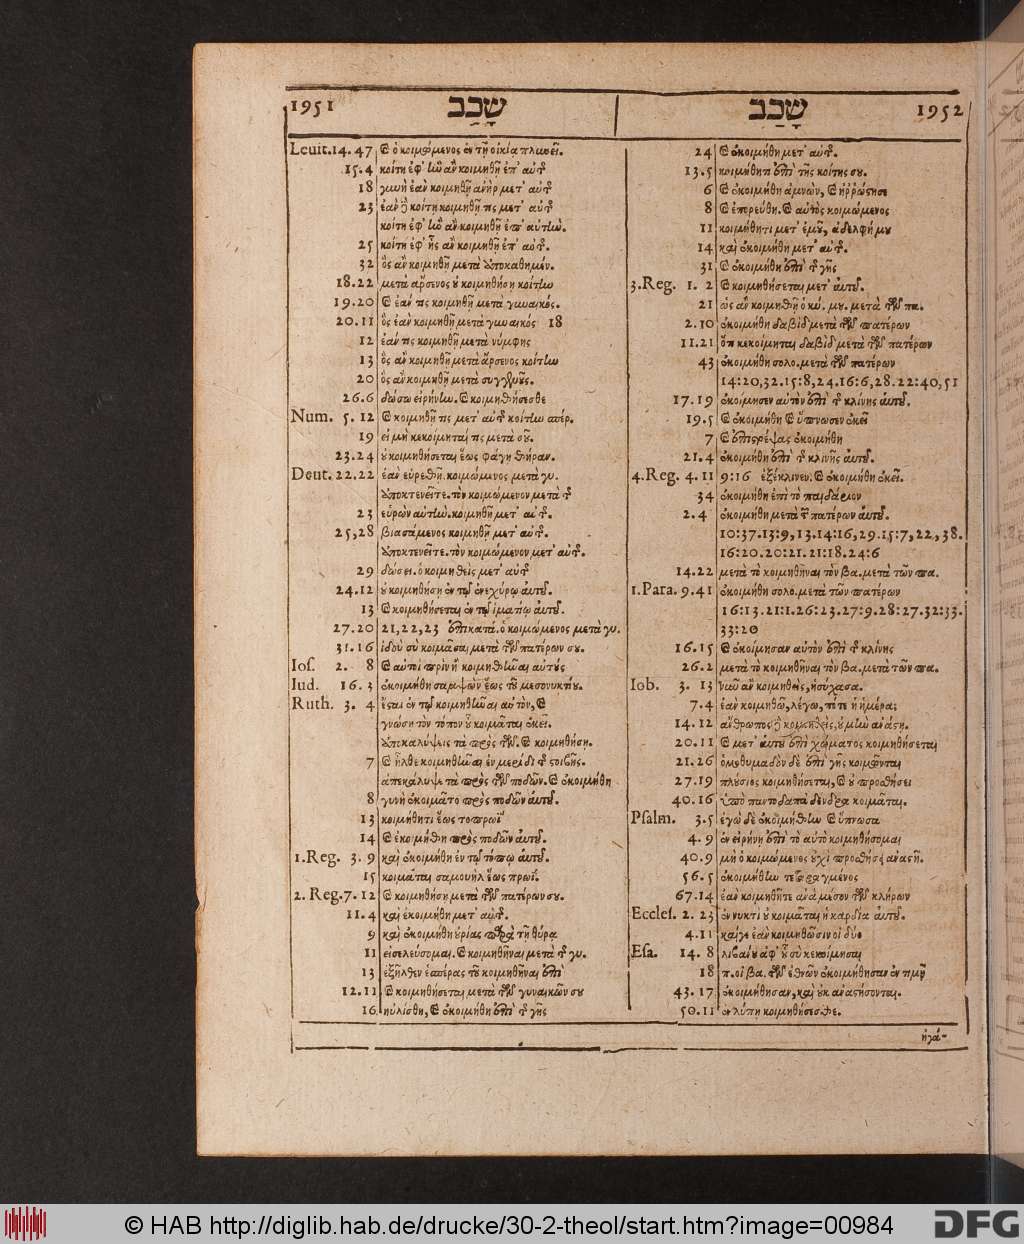 1951 שָׁכַב
שָׁכַב 1952
Leuit. 14. 47 καὶ ὁ κοιμώμενος ἐν τῇ οἰκία πλυνεῖ.
15. 4 κοίτη ἐφ᾽ ἣν ἂν κοιμηθῇ ἐπ᾽ αὐτῆς
18 γυνὴ ἐὰν κοιμηθῇ ἀνὴρ μετ᾽ αὐτῆς
23 ἐὰν ἢ κοίτη κοιμηθῇ τις μετ᾽ αὐτῆς
κοίτη ἐφ᾽ ἣν ἂν κοιμηθῇ ἐπ᾽ αὐτήν.
25 κοίτη ἐφ᾽ ἧς ἂν κοιμηθῇ ἐπ᾽ αὐτῆς.
32 ὃς ἂν κοιμηθῇ μετὰ ἀποκαθημέν.
18. 22 μετὰ ἄρσενος οὐ κοιμηθήσῃ κοίτην
19. 20 καὶ ἐάν τις κοιμηθῇ μετὰ γυναικός.
20. 11 ὃς ἐὰν κοιμηθῇ μετὰ γυναικός 18
12 ἐάν τις κοιμηθῇ μετὰ νύμφης
13 ὃς ἂν κοιμηθῇ μετὰ ἄρσενος κοίτην
20 ὃς ἂν κοιμηθῇ μετὰ συγγενοῦς.
26. 6 δώσω εἰρήνην. καὶ κοιμηθήσεσθε
Num. 5. 12 καὶ κοιμηθῇ τις μετ᾽ αὐτῆς κοίτην σπέρ.
19 εἰ μὴ κεκοίμηταί τις μετὰ σοῦ.
23. 24 οὐ κοιμηθήσεται ἕως φάγῃ θήραν.
Deut. 22. 22 ἐὰν εὑρεθῇ. κοιμώμενος μετὰ γυ.
ἀποκτενεῖτε. τὸν κοιμώμενον μετὰ τῆς
23 εὑρὼν αὐτὴν. κοιμηθῇ μετ᾽ αὐτῆς.
25, 28 βιασάμενος κοιμηθῇ μετ᾽ αὐτῆς.
ἀποκτενεῖτε. τὸν κοιμώμενον μετ᾽ αὐτῆς.
29 δώσει. ὁ κοιμηθεὶς μετ᾽ αὐτῆς
24. 12 οὐ κοιμηθήσῃ ἐν τῷ ἐνεχύρῳ αὐτοῦ.
13 καὶ κοιμηθήσεται ἐν τῷ ἱματίῳ αὐτοῦ.
27. 20 21, 22, 23 ἐπικατά. ὁ κοιμώμενος μετὰ γυ.
31. 16 ἰδοὺ σὺ κοιμᾶσαι μετὰ τῶν πατέρων σου.
Ios. 2. 8 καὶ αὐτοὶ πρὶν ἢ κοιμηθῆναι αὐτοὺς
Iud. 16. 3 ἐκοιμήθη σαμψὼν ἕως τοῦ μεσονυκτίου.
Ruth. 3. 4 ἔσται ἐν τῷ κοιμηθῆναι αὐτὸν, καὶ
γνώσῃ τὸν τόπον οὗ κοιμᾶται ἐκεῖ.
ἀποκαλύψεις τὰ πρὸς τῶν. καὶ κοιμηθήσῃ.
7 καὶ ἦλθε κοιμηθῆναι ἐν μερίδι τῆς στοιβῆς.
ἀπεκάλυψε τὰ πρὸς τῶν ποδῶν. καὶ ἐκοιμήθη
8 γυνὴ ἐκοιμᾶτο πρὸς ποδῶν αὐτοῦ.
13 κοιμήθητι ἕως τοπρωῒ
14 καὶ ἐκοιμήθη πρὸς ποδῶν αὐτοῦ.
1. Reg. 3. 9 καὶ ἐκοιμήθη ἐν τῷ τόπῳ αὐτοῦ.
15 κοιμᾶται σαμουὴλ ἕως πρωΐ.
2. Reg. 7. 12 καὶ κοιμηθήσῃ μετὰ τῶν πατέρων σου.
11. 4 καὶ ἐκοιμήθη μετ᾽ αὐτῆς.
9 καὶ ἐκοιμήθη οὐρίας παρὰ τῇ θύρᾳ
11 εἰσελεύσομαι. καὶ κοιμηθῆναι μετὰ τῆς γυ.
13 ἐξῆλθεν ἑσπέρας τοῦ κοιμηθῆναι ἐπὶ
12. 11 καὶ κοιμηθήσεται μετὰ τῶν γυναικῶν σου
16 ηὐλίσθη, καὶ ἐκοιμήθη ἐπὶ τῆς γῆς
24 καὶ ἐκοιμήθη μετ᾽ αὐτῆς.
13. 5 κοιμήθητι ἐπὶ τῆς κοίτης σου.
6 καὶ ἐκοιμήθη ἀμνὼν, καὶ ἠῤῥώστησε
8 καὶ ἐπορεύθη. καὶ αὐτὸς κοιμώμενος
11 κοιμήθητι μετ᾽ ἐμοῦ, ἀδελφή μου
14 καὶ ἐκοιμήθη μετ᾽ αὐτῆς.
31 καὶ ἐκοιμήθη ἐπὶ τῆς γῆς
3. Reg. 1. 2 καὶ κοιμηθήσεται μετ᾽ αὐτοῦ.
21 ὡς ἂν κοιμηθῇ ὁ κύ. μου. μετὰ τῶν πα.
2. 10 ἐκοιμήθη δαβὶδ μετὰ τῶν πατέρων
11. 21 ὅτι κεκοίμηται δαβὶδ μετὰ τῶν πατέρων
43 ἐκοιμήθη σολο. μετὰ τῶν πατέρων
14:20, 32. 15:8, 24. 16:6, 28. 22:40, 51
17. 19 ἐκοίμησεν αὐτὸν ἐπὶ τῆς κλίνης αὐτοῦ.
19. 5 καὶ ἐκοιμήθη καὶ ὕπνωσεν ἐκεῖ
7 καὶ ἐπιστρέψας ἐκοιμήθη
21. 4 ἐκοιμήθη ἐπὶ τῆς κλινῆς αὐτοῦ.
4. Reg. 4. 11 9:16 ἐξέκλινεν. καὶ ἐκοιμήθη ἐκεῖ.
34 ἐκοιμήθη ἐπὶ τὸ παιδάριον
2. 4 ἐκοιμήθη μετὰ τῶν πατέρων αὐτοῦ.
10:37. 13:9, 13. 14:16, 29. 15:7, 22, 38.
16:20. 20:21. 21:18. 24:6
14. 22 μετὰ τὸ κοιμηθῆναι τὸν βα. μετὰ τῶν πα.
1. Para. 9. 41 ἐκοιμήθη σολο. μετὰ τῶν πατέρων
16:13. 21:1. 26:23. 27:9. 28:27. 32:33.
33:20
16. 15 καὶ ἐκοίμησαν αὐτὸν ἐπὶ τῆς κλίνης
26. 2 μετὰ τὸ κοιμηθῆναι τὸν βα. μετὰ τῶν πα.
Iob. 3. 13 νῦν ἂν κοιμηθεὶς, ἡσύχασα.
7. 4 ἐὰν κοιμηθῶ, λέγω, πότε ἡ ἡμέρα;
14. 12 ἄνθρωπος ἢ κοιμηθεὶς, οὐ μὴν ἀναστῇ.
20. 11 καὶ μετ᾽ αὐτοῦ ἐπὶ χώματος κοιμηθήσεται
21. 26 ὁμοθυμαδὸν δὲ ἐπὶ γῆς κοιμῶνται
27. 19 πλούσιος κοιμηθήσεται, καὶ οὐ προσθήσει
40. 16 ὑπὸ παντοδαπὰ δένδρα κοιμᾶται.
Psalm. 3. 5 ἐγὼ δὲ ἐκοιμήθην καὶ ὕπνωσα
4. 9 ἐν εἰρήνῃ ἐπὶ τὸ αὐτὸ κοιμηθήσομαι
40. 9 μὴ ὁ κοιμώμενος οὐχὶ προσθήσει ἀναστῇ.
56. 5 ἐκοιμήθην τεταραγμένος
67. 14 ἐὰν κοιμηθῆτε ἀνὰ μέσον τῶν κλήρων
Eccles. 2. 23 ἐν νυκτὶ οὐ κοιμᾶται ἡ καρδία αὐτοῦ.
4. 11 καίγε ἐὰν κοιμηθῶσιν οἱ δύο
Esa. 14. 8 λιβάνου ἀφ᾽ οὗ σὺ κεκοίμησαι
18 π. οἱ βα. τῶν ἐθνῶν ἐκοιμήθησαν ἐν τιμῇ
43. 17 ἐκοιμήθησαν, καὶ οὐκ ἀναστήσονται.
50. 11 ἐν λύπῃ κοιμηθήσεσθε.
ἠγά-
© HAB http://diglib.hab.de/drucke/30-2-theol/start.htm?image=00984 DFG